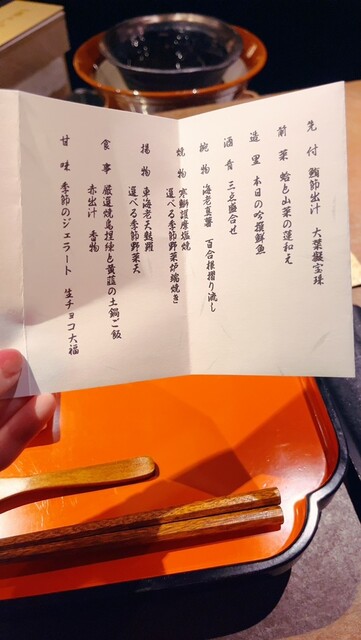 先付 鮪節出汁 大葉擬宝珠
前菜 蛤と山菜の蓬和え
造里 本日の吟撰鮮魚
酒肴 三点盛合せ
椀物 海老真薯 百合根摺り流し
焼物 寒鰤諸厚塩焼
選べる季節野菜炉端焼き
揚物 車海老天麩羅
選べる季節野菜天
食事 厳選焼鳥捏ねと黄韮の土鍋ご飯
赤出汁 香物
甘味 季節のジェラート 生チョコ大福